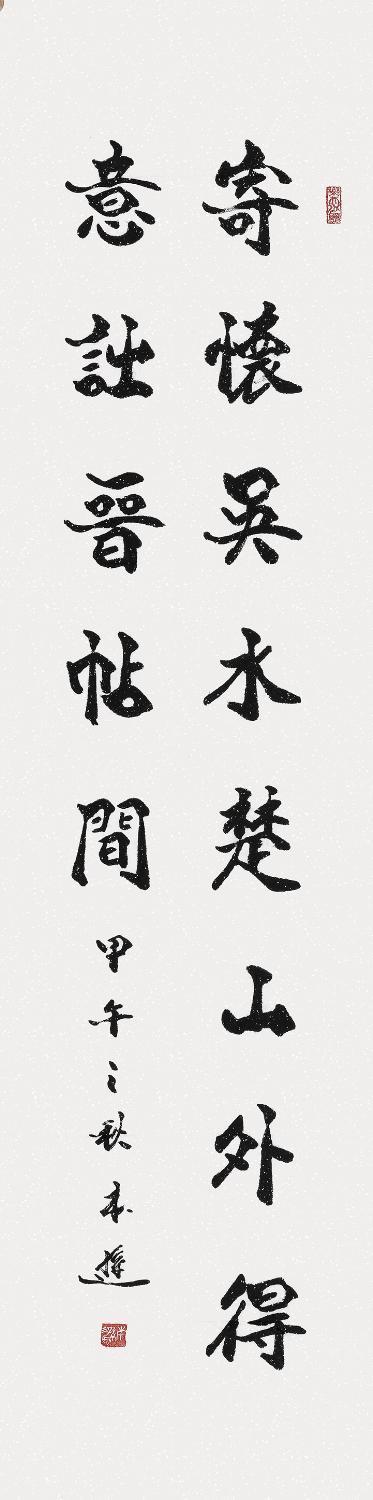 寄懷吳水楚山外得
意晉帖間
甲午之秋本